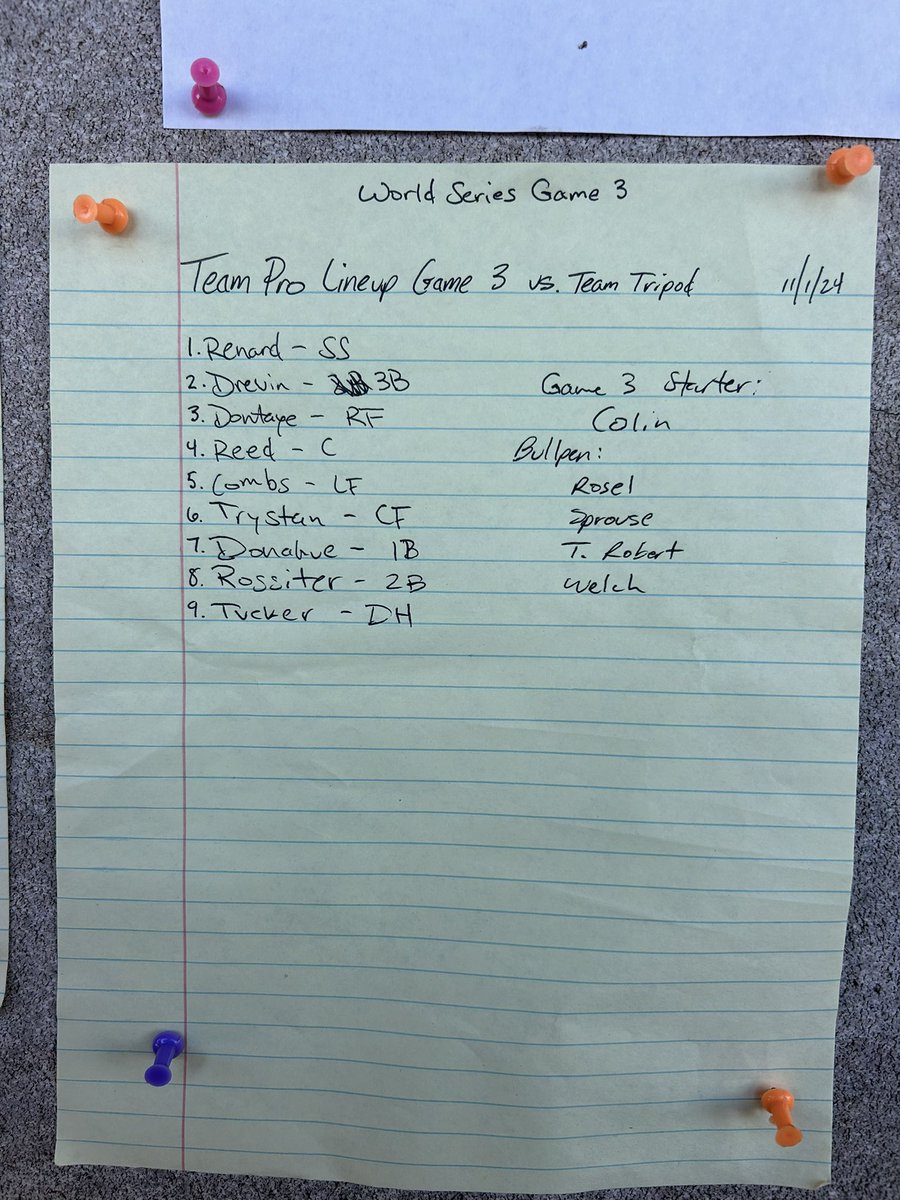 World Series Game 3
Team Pro Lineup Game 3 vs. Team Tripod 11/1/24
1. Renard - SS
2. Drevin - 3B
3. Dontaye - RF
4. Reed - C
5. Combs - LF
6. Trystan - CF
7. Donahue - 1B
8. Rossiter - 2B
9. Tucker - DH
Game 3 Starter:
Colin
Bullpen:
Rosel
Sprouse
T. Robert
Welch